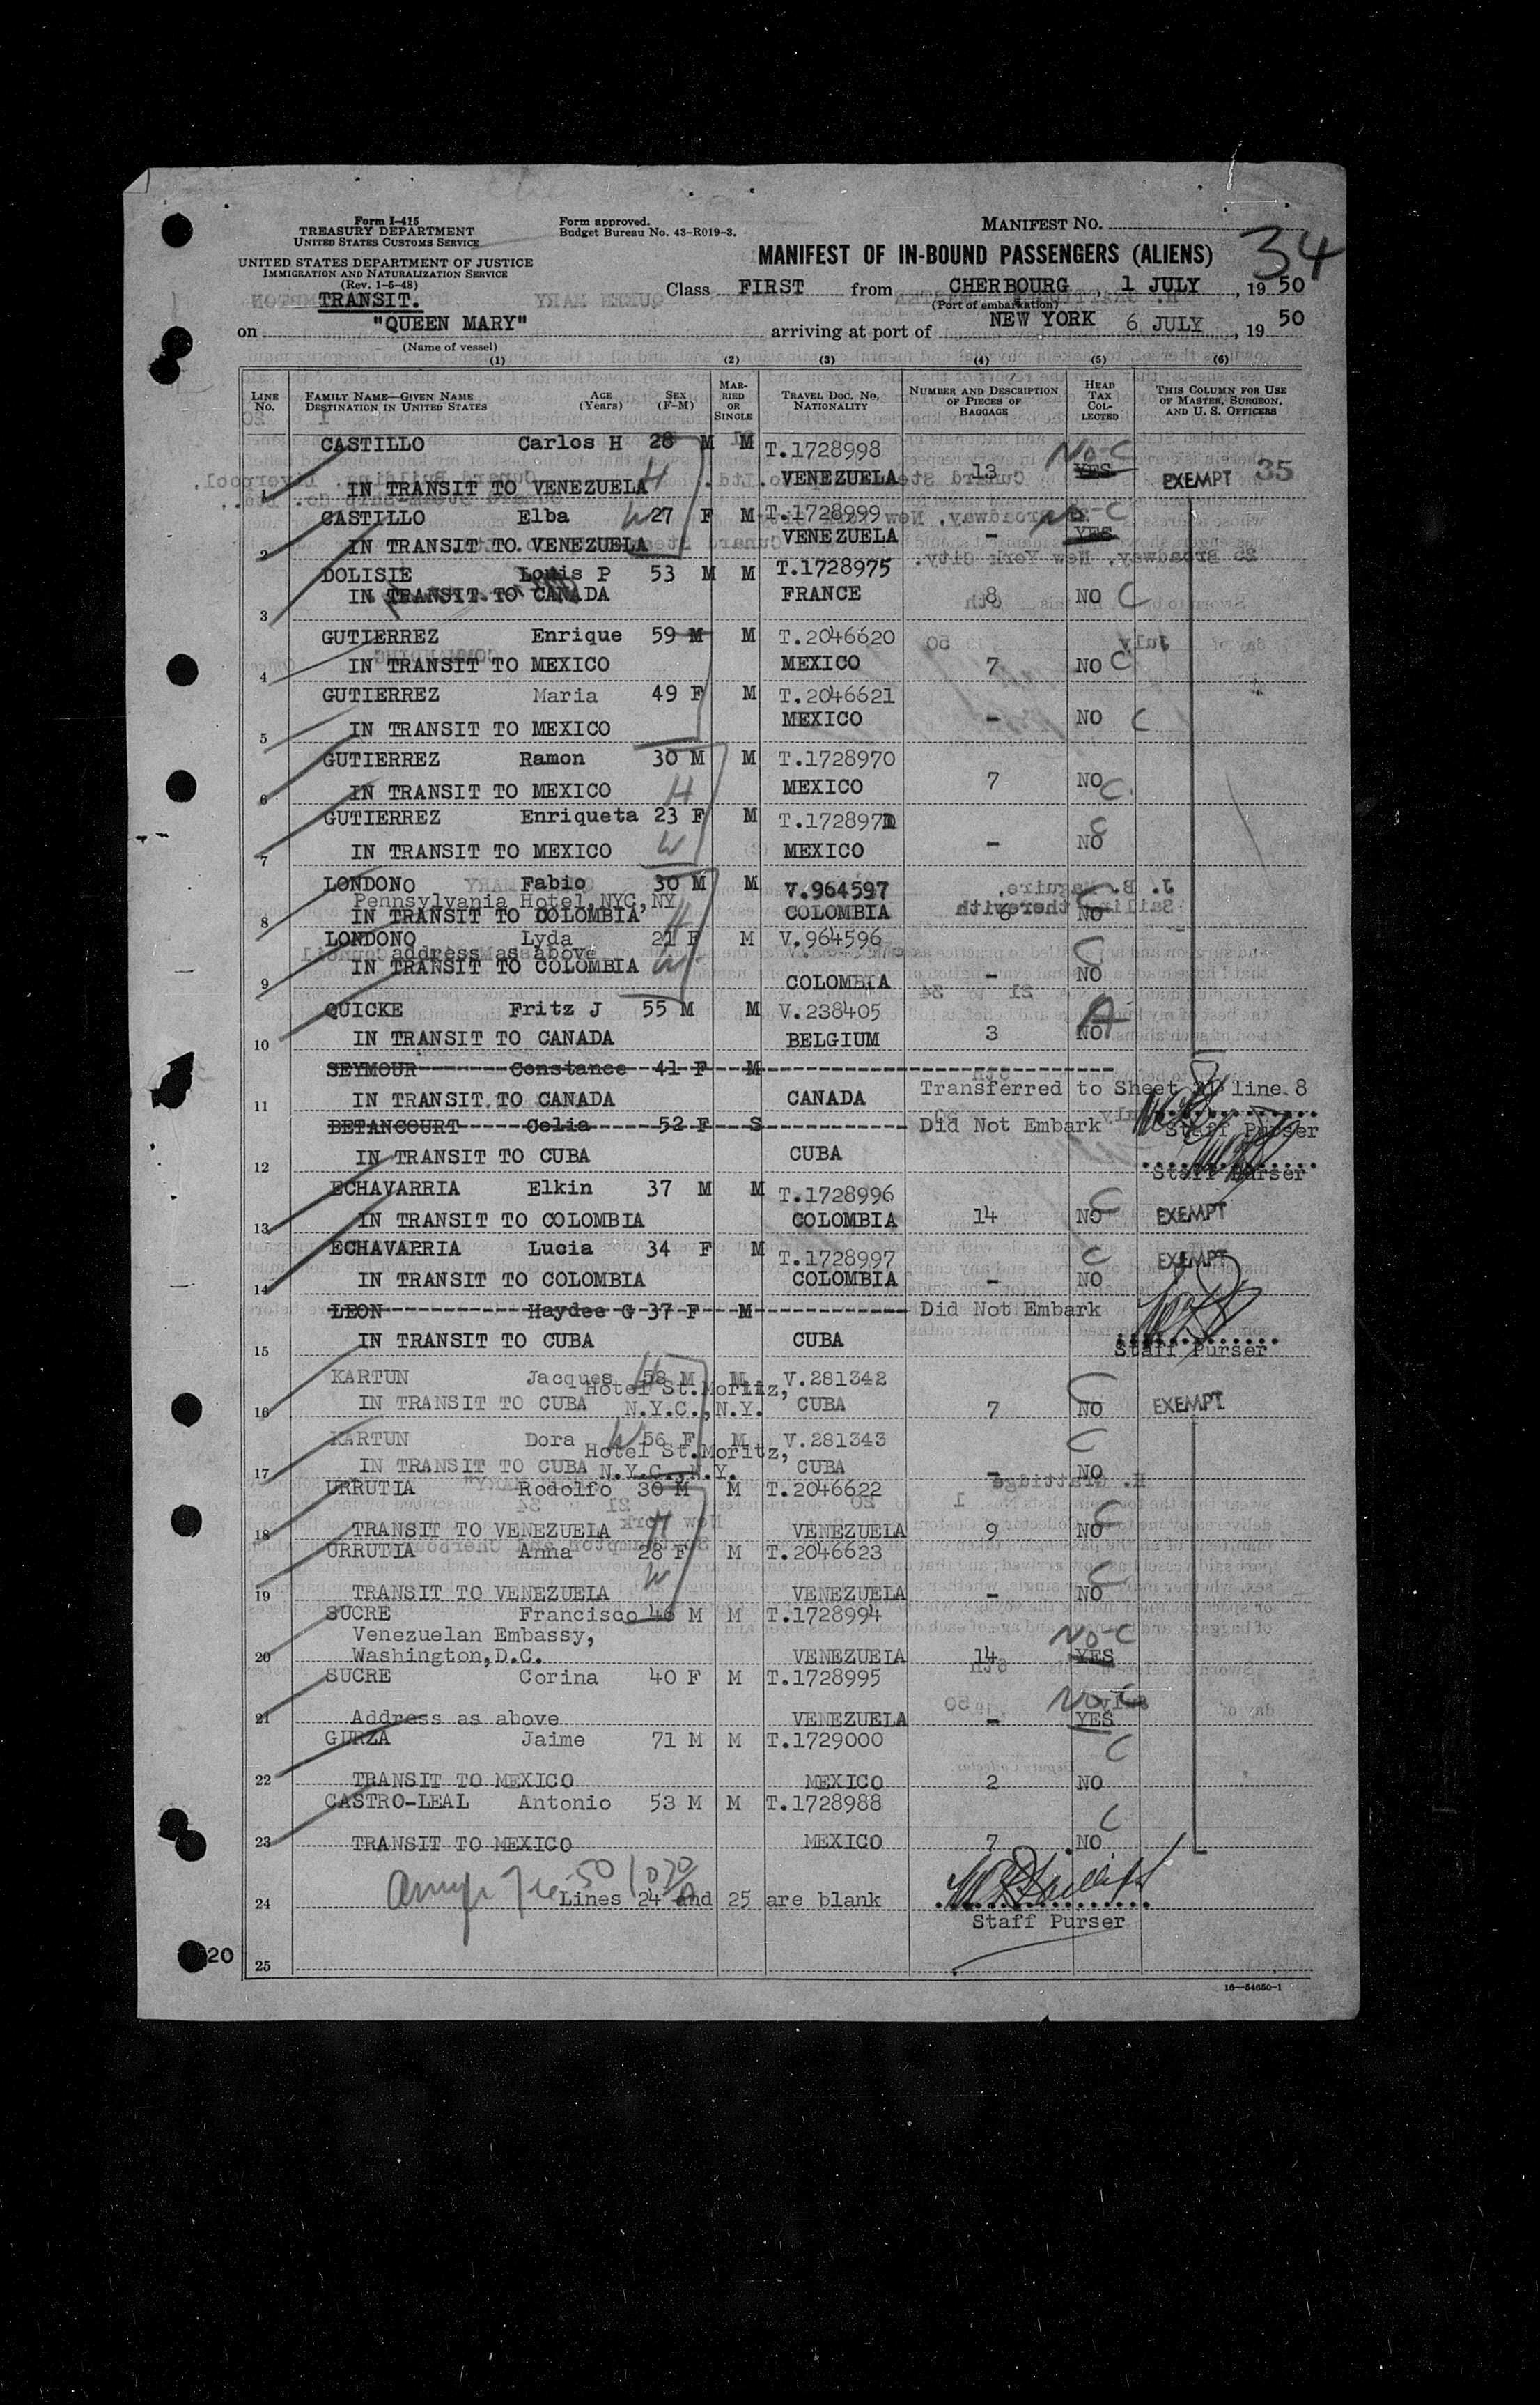 Form I-415
TREASURY DEPARTMENT
UNITED STATES CUSTOMS SERVICE
UNITED STATES DEPARTMENT OF JUSTICE
IMMIGRATION AND NATURALIZATION SERVICE
(Rev. 1-5-48)
TRANSIT.
Form approved.
Budget Bureau No. 43-R019-3.
MANIFEST NO.
34
MANIFEST OF IN-BOUND PASSENGERS (ALIENS)
Class FIRST from CHERBOURG, 1 JULY, 19 50
(Port of embarkation)
on "QUEEN MARY" arriving at port of NEW YORK 6 JULY, 19 50
(Name of vessel)
(1) (2) (3) (4) (5) (6)
LINE No. FAMILY NAME—GIVEN NAME DESTINATION IN UNITED STATES AGE (Years) SEX (F-M) MARRIED OR SINGLE TRAVEL DOC. NO. NATIONALITY NUMBER AND DESCRIPTION OF PIECES OF BAGGAGE HEAD TAX COLLECTED THIS COLUMN FOR USE OF MASTER, SURGEON, AND U. S. OFFICERS
CASTILLO Carlos H 28 M M T.1728998 No-C
1 IN TRANSIT TO VENEZUELA H VENEZUELA 13 YES EXEMPT 35
CASTILLO Elba W 27 F M T.1728999 No-C
2 IN TRANSIT TO VENEZUELA VENEZUELA - YES
DOLISIE Louis P 53 M M T.1728975
3 IN TRANSIT TO CANADA FRANCE 8 NO C
GUTIERREZ Enrique 59 M M T.2046620
4 IN TRANSIT TO MEXICO MEXICO 7 NO C
GUTIERREZ Maria 49 F M T.2046621
5 IN TRANSIT TO MEXICO MEXICO - NO C
GUTIERREZ Ramon 30 M M T.1728970
6 IN TRANSIT TO MEXICO H MEXICO 7 NO C
GUTIERREZ Enriqueta 23 F M T.172897
7 IN TRANSIT TO MEXICO W MEXICO - NO C
LONDONO Fabio 30 M M V.964597
Pennsylvania Hotel, NYC, NY
8 IN TRANSIT TO COLOMBIA H COLOMBIA 6 NO C
LONDONO Lyda 21 F M V.964596
address as above
9 IN TRANSIT TO COLOMBIA W COLOMBIA - NO C
QUICKE Fritz J 55 M M V.238405 A
10 IN TRANSIT TO CANADA BELGIUM 3 NO
SEYMOUR Constance 41 F M
Transferred to Sheet line 8
11 IN TRANSIT TO CANADA CANADA
Staff Purser
BETANCOURT Celia 52 F S Did Not Embark
12 IN TRANSIT TO CUBA CUBA
Staff Purser
ECHAVARRIA Elkin 37 M M T.1728996
13 IN TRANSIT TO COLOMBIA COLOMBIA 14 NO C EXEMPT
ECHAVARRIA Lucia 34 F M T.1728997
14 IN TRANSIT TO COLOMBIA COLOMBIA - NO C EXEMPT
LEON Haydee G 37 F M Did Not Embark
15 IN TRANSIT TO CUBA CUBA
Staff Purser
KARTUN Jacques H 58 M M V.281342
Hotel St.Moritz,
16 IN TRANSIT TO CUBA N.Y.C.,N.Y. CUBA 7 NO C EXEMPT
KARTUN Dora W 56 F M V.281343
Hotel St.Moritz,
17 IN TRANSIT TO CUBA N.Y.C.,N.Y. CUBA - NO C
URRUTIA Rodolfo 30 M M T.2046622
18 TRANSIT TO VENEZUELA H VENEZUELA 9 NO C
URRUTIA Anna 28 F M T.2046623
19 TRANSIT TO VENEZUELA W VENEZUELA - NO C
SUCRE Francisco 46 M M T.1728994
Venezuelan Embassy, No-C
20 Washington,D.C. VENEZUELA 14 YES
SUCRE Corina 40 F M T.1728995 No-C
21 Address as above VENEZUELA - YES
GURZA Jaime 71 M M T.1729000
22 TRANSIT TO MEXICO MEXICO 2 NO C
CASTRO-LEAL Antonio 53 M M T.1728988
23 TRANSIT TO MEXICO MEXICO 7 NO C
24 Lines 24 and 25 are blank
Staff Purser
20
25
16—54650-1